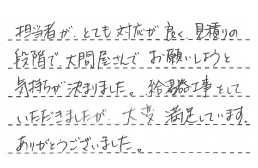 担当者が、とても対応が良く、見積りの
段階で大問屋さんでお願いしようと
気持ちが決まりました。給湯器工事をして
いただきましたが、大変満足しています。
ありがとうございました。